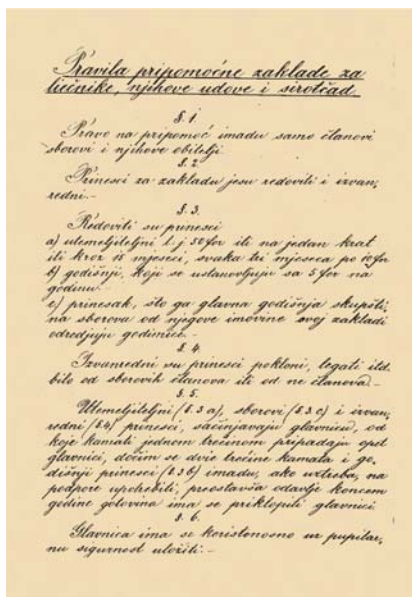 Pravila pripomoćne zaklade za
liečnike, njihove udove i sirotčad.
§. 1.
Pravo na pripomoć imadu samo članovi
sborovi i njihove obitelji.
§. 2.
Prinesci za zakladu jesu redoviti i izvan,
redni. -
§. 3.
Redoviti su prinesci
a) utemeljiteljni t. j. 50 for ili na jedan krat
ili kroz 15 mjeseci, svaka tri mjeseca po 10 for
b) godišnji, koji se ustanovljuju sa 5 for na
godinu. -
c) prinesak, što ga glavna godišnja skupšti,
na sborova od njegove imovine svoj zakladi
odredjuje godimice. -
§. 4.
Izvanredni su prinesci pokloni, legati itd.
bilo od sborovih članova ili od ne članova. -
§. 5.
Utemeljiteljni (§. 3 a), sborovi (§. 3 c) i izvan,
redni (§. 4) prinesci, sačinjavaju glavnicu, od
koje kamati jednom trećinom pripadaju opet
glavnici, dočim se dvie trećine kamata i go,
dišnji prinesci (§. 3 b) imadu, ako uztreba, na
podpore upotrebiti, preostavša odavlje koncem
godine gotovina ima se priklopiti glavnici.
§. 6.
Glavnica ima se koristonosno uz pupilar,
nu sigurnost uložiti. -